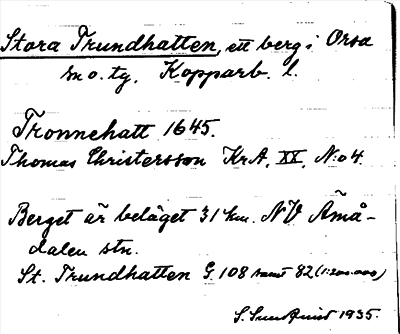 Stora Trundhatten, ett berg i Orsa
sn o. tg, Kopparb. l.
Tronnehatt 1645.
Thomas Christersson KrA, XX, N:o 4.
Berget är beläget 31 km. NV Åmå-
dalen stn.
St. Trundhatten G. 108 samt 82 (1:200.000)
S. Sundquist 1935.